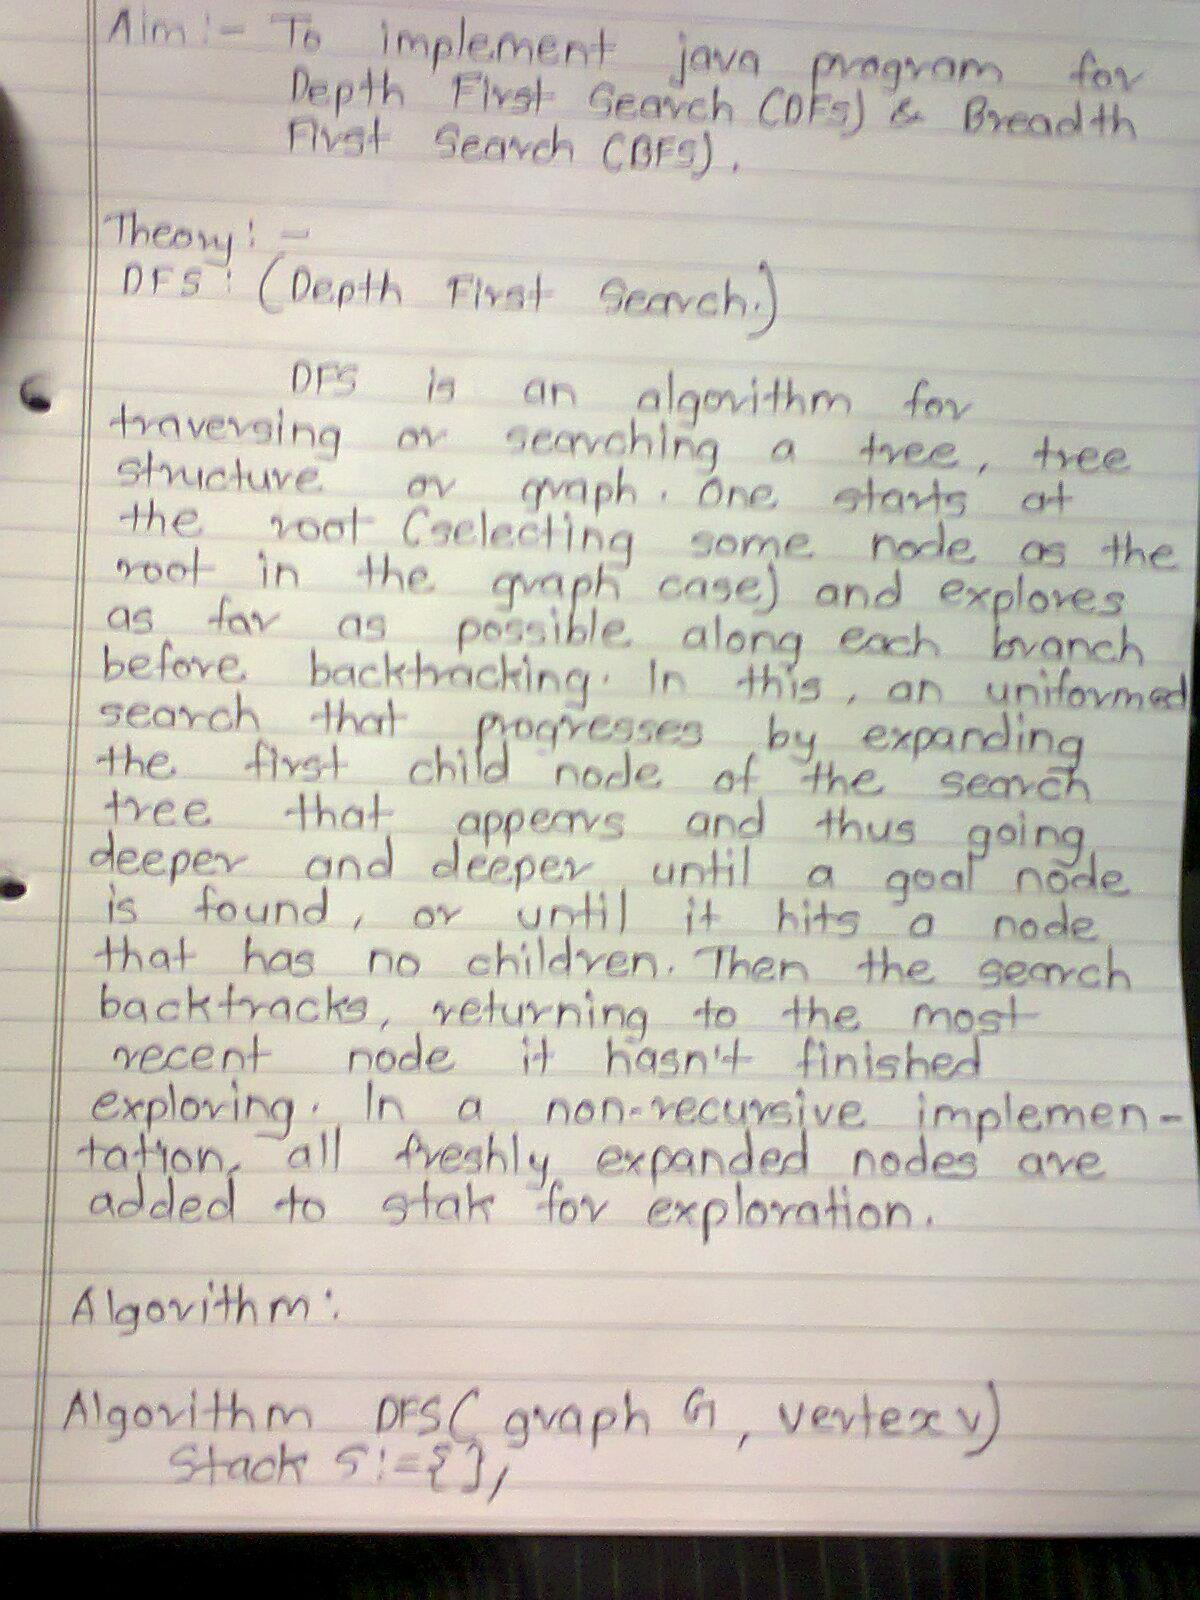 Aim :- To implement java program for
Depth First Search (DFS) & Breadth
First Search (BFS).
Theory : -
DFS : (Depth First Search.)
DFS is an algorithm for
traversing or searching a tree, tree
structure or graph. One starts at
the root (selecting some node as the
root in the graph case) and explores
as far as possible along each branch
before backtracking. In this, an uniformed
search that progresses by expanding
the first child node of the search
tree that appears and thus going
deeper and deeper until a goal node
is found, or until it hits a node
that has no children. Then the search
backtracks, returning to the most
recent node it hasn't finished
exploring. In a non-recursive implemen-
tation, all freshly expanded nodes are
added to stak for exploration.
Algorithm :
Algorithm DFS( graph G , vertex v)
Stack S := {};